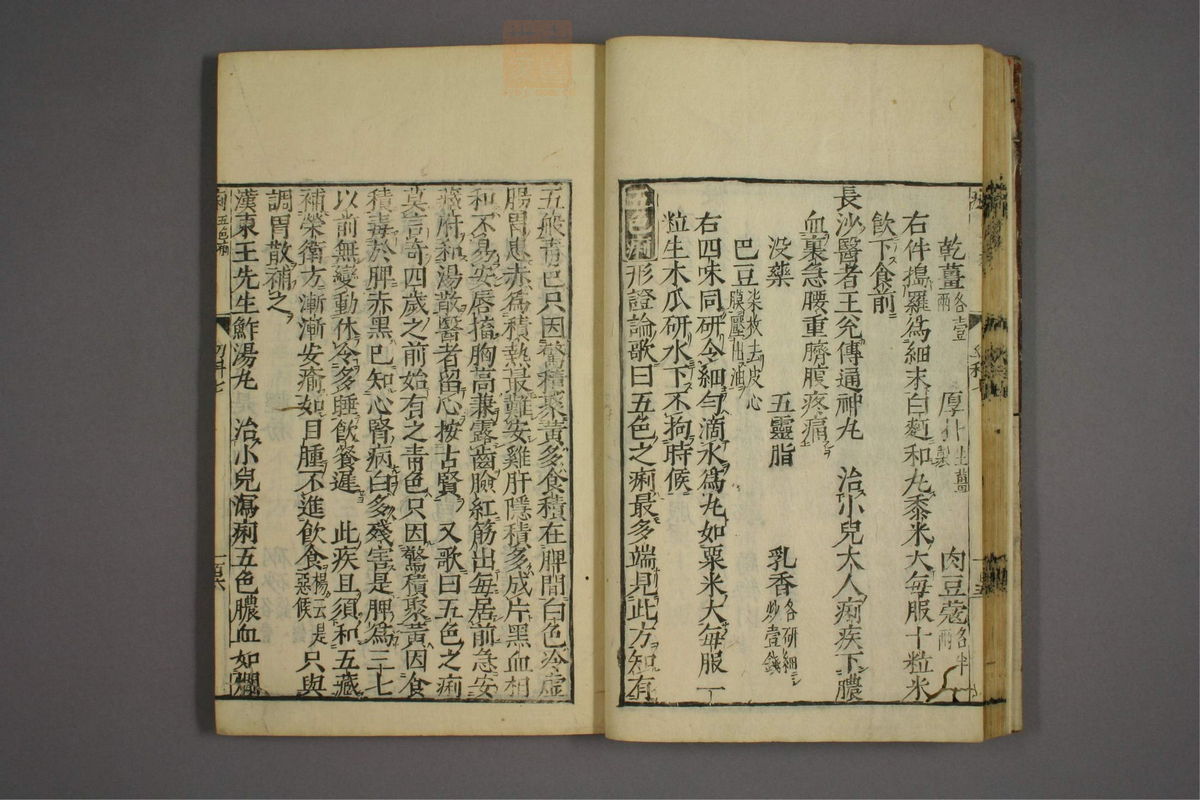 乾薑各壹兩　厚朴生薑製　肉豆蔻各半兩
右件擣羅爲細末白麪和丸黍米大每服十粒米
飲下食前
長沙醫者王兊傳通神丸　治小兒大人痢疾下膿
血裏急腰重臍腹疼痛
没藥　五靈脂　乳香各研細炒壹錢
巴豆柒枚去皮心膜壓出油
右四味同研令細勻滴水爲丸如粟米大每服一
粒生木瓜研水下不拘時候
五色痢形證論歌曰五色之痢最多端見此方知有
五般青色只因驚積聚黃多食積在脾間白色冷虛
腸胃患赤爲積熱最難安雞肝隱積多成片黑血相
和不易安唇搐胸高兼露齒臉紅筋出每居前急安
藏府和湯散醫者留心按古賢　又歌曰五色之痢
莫言奇四歲之前始有之青色只因驚積聚黃因食
積毒於脾赤黑已知心腎病白多殘害是脾爲三十七
以前無變動休冷多睡飲餐遲　此疾且須和五藏
補榮衛方漸漸安瘉如目腫不進飲食楊云是惡候只與
調胃散補之
漢東王先生鮓湯丸　治小兒瀉痢五色膿血如爛